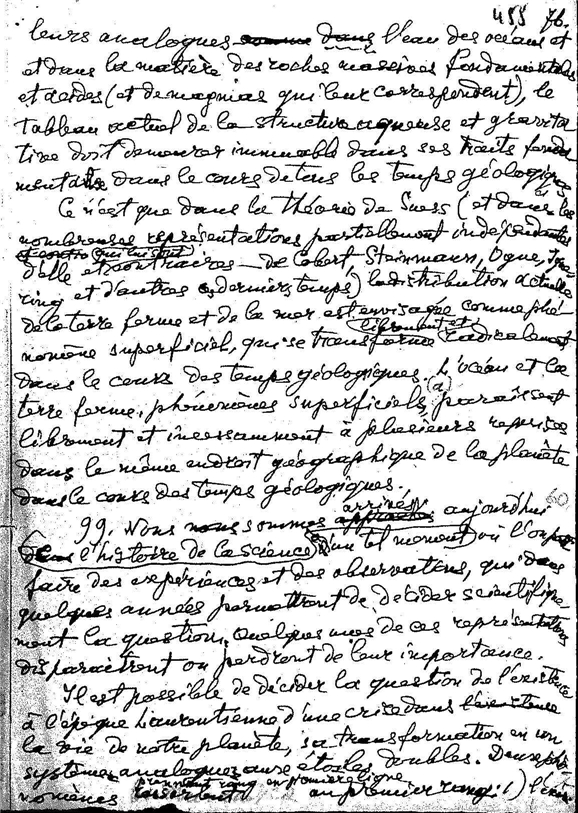 455 76.
leurs analogues comme dans l'eau des océans et
et dans la matière des roches massives fondamentales
et acides (et de magmas qui leur correspondent), le
tableau actuel de la structure aqueuse et gravita
tive doit demeurer immuable dans ses traits fonda
mentaux dans le cours de tous les temps géologiques
Ce n'est que dans la théorie de Suess (et dans les
nombreuses représentations partiellement indépendantes
qui lui sont
d'elle et contraires – de Cobert, Steinmann, Ogue,
ring et d'autres derniers temps) la distribution actuelle
de la terre ferme et de la mer est envisagée comme phé
librement et
nomène superficiel, qui se transforme radicalement
dans le cours des temps géologiques. L'océan et la
(a)
terre ferme, phénomènes superficiels, paraissent
librement et incessamment à plusieurs reprises
dans le même endroit géographique de la planète
dans le cours des temps géologiques.
60
arrivés
99. Nous nous sommes approchés aujourd'hui
dans l'histoire de la science d'un tel moment où l'on peut
faire des expériences et des observations, qui dans
quelques années permettront de décider scientifique
ment la question. Quelques unes de ces représentations
disparaîtront ou perdront de leur importance.
Il est possible de décider la question de l'existence
à l'époque Laurentienne d'une crise dans l'existence
la vie de notre planète, sa transformation en un
système analogue aux étoiles doubles. Deux phé
prennent rang en première ligne
nomènes au premier rang: 1)